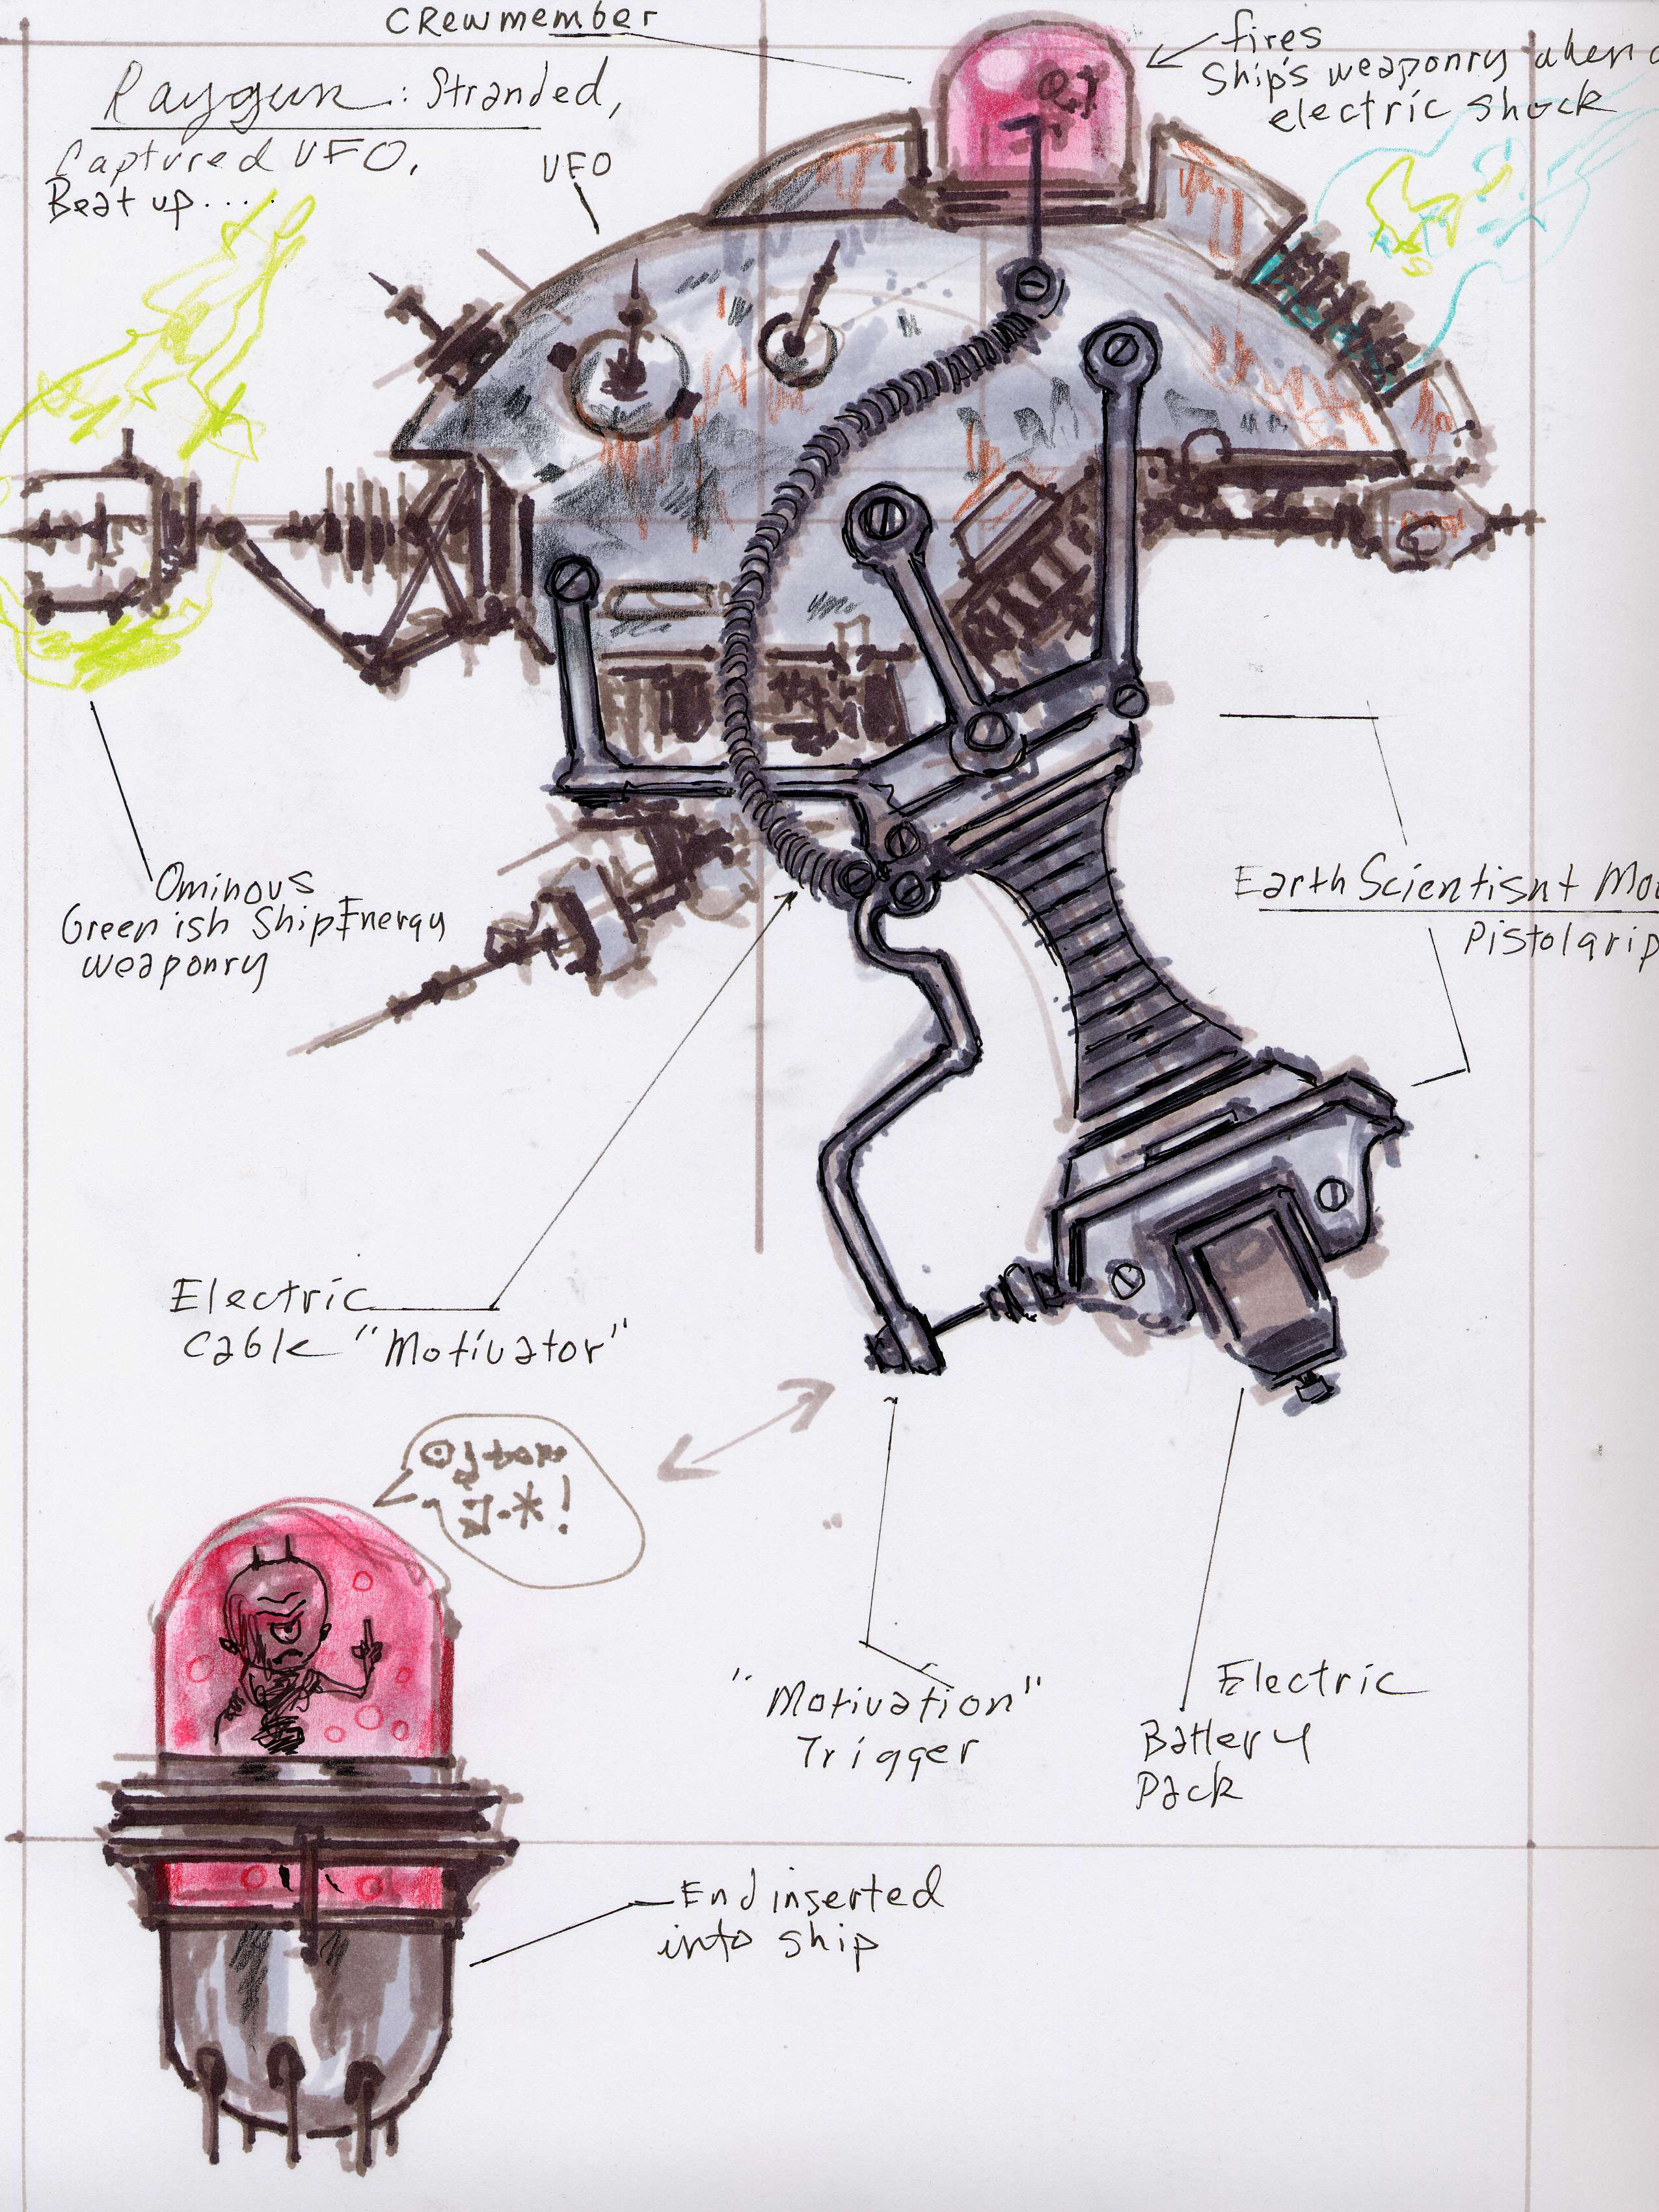 Crewmember
Raygun: Stranded,
Captured UFO,
Beat up.....
UFO
fires
Ship's weaponry when
electric shock
Ominous
Greenish Ship Energy
weaponry
Earth Scientisnt
Pistolgrip
Electric
Cable "Motivator"
"Motivation"
Trigger
Electric
Battery
Pack
End inserted
into ship